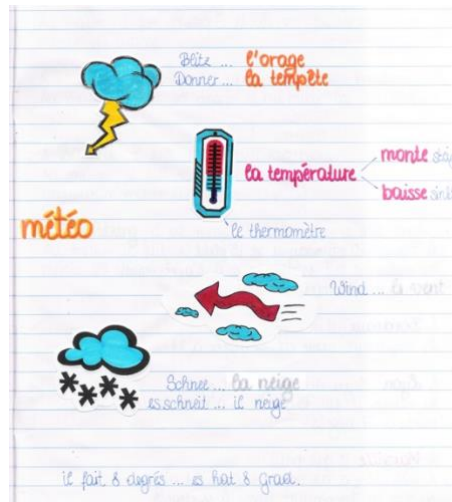 Blitz ... l'orage
Donner ... la tempête
la température
monte
baisse
météo
le thermomètre
Wind ... le vent
Schnee ... la neige
es schneit ... il neige
il fait 8 degrés ... es hat 8 Grad.